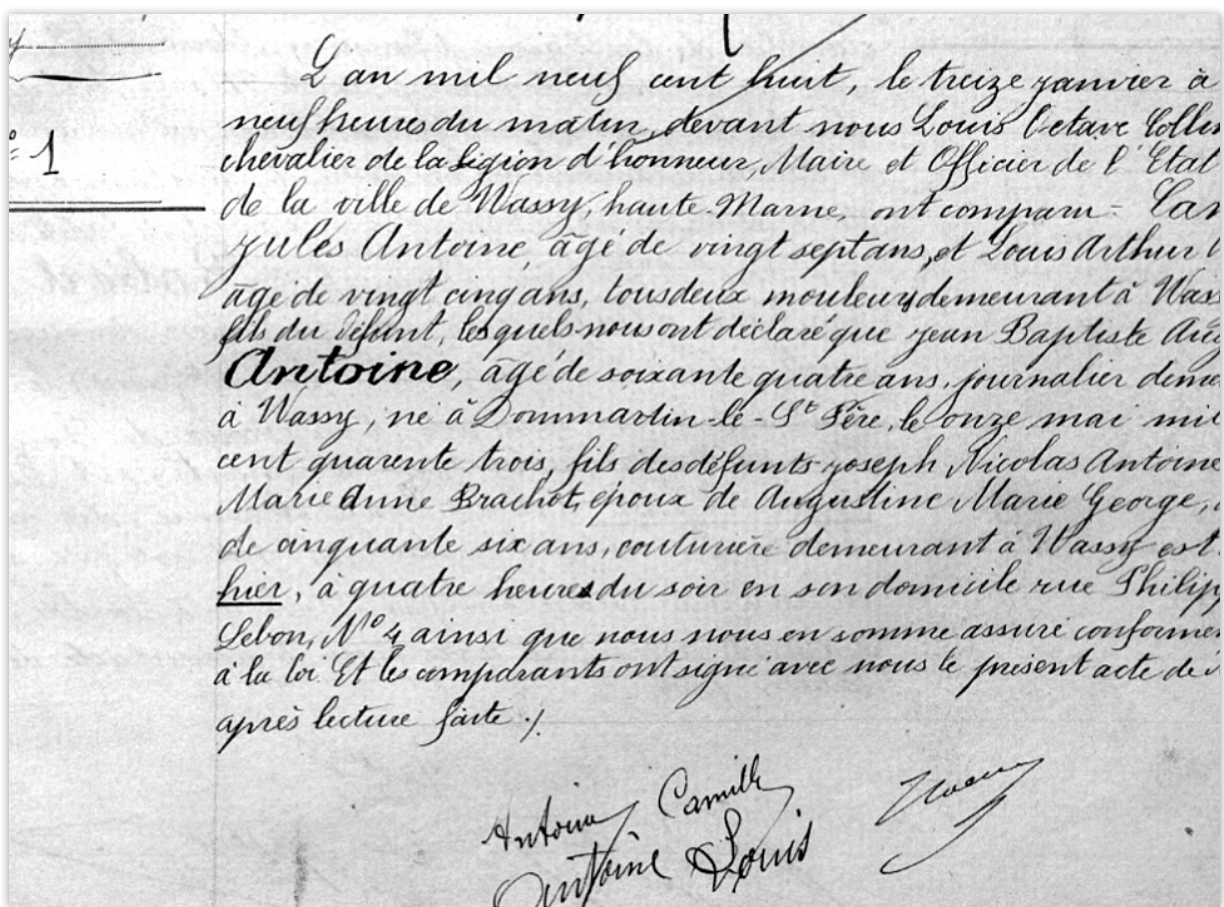 ° 1
L'an mil neuf cent huit, le treize janvier à
neuf heures du matin, devant nous Louis Octave Collin
chevalier de la Légion d'honneur, Maire et Officier de l'Etat
de la ville de Wassy, haute-Marne, ont comparu = Cam
jules Antoine, âgé de vingt sept ans, et Louis Arthur
âgé de vingt cinq ans, tous deux mouleurs demeurant à Wass
fils du défunt, lesquels nous ont déclaré que jean Baptiste Aug
Antoine, âgé de soixante quatre ans, journalier deme
à Wassy, né à Dommartin-le-St Père, le onze mai mil
cent quarente trois, fils des défunts joseph Nicolas Antoine
Marie Anne Brachot, époux de Augustine Marie George,
de cinquante six ans, couturière demeurant à Wassy est
hier, à quatre heures du soir en son domicile rue Philipp
Lebon, N° 4 ainsi que nous nous en somme assuré conformé
à la loi. Et les comparants ont signé avec nous le présent acte de
après lecture faite ./
Antoine Camille
Antoine Louis